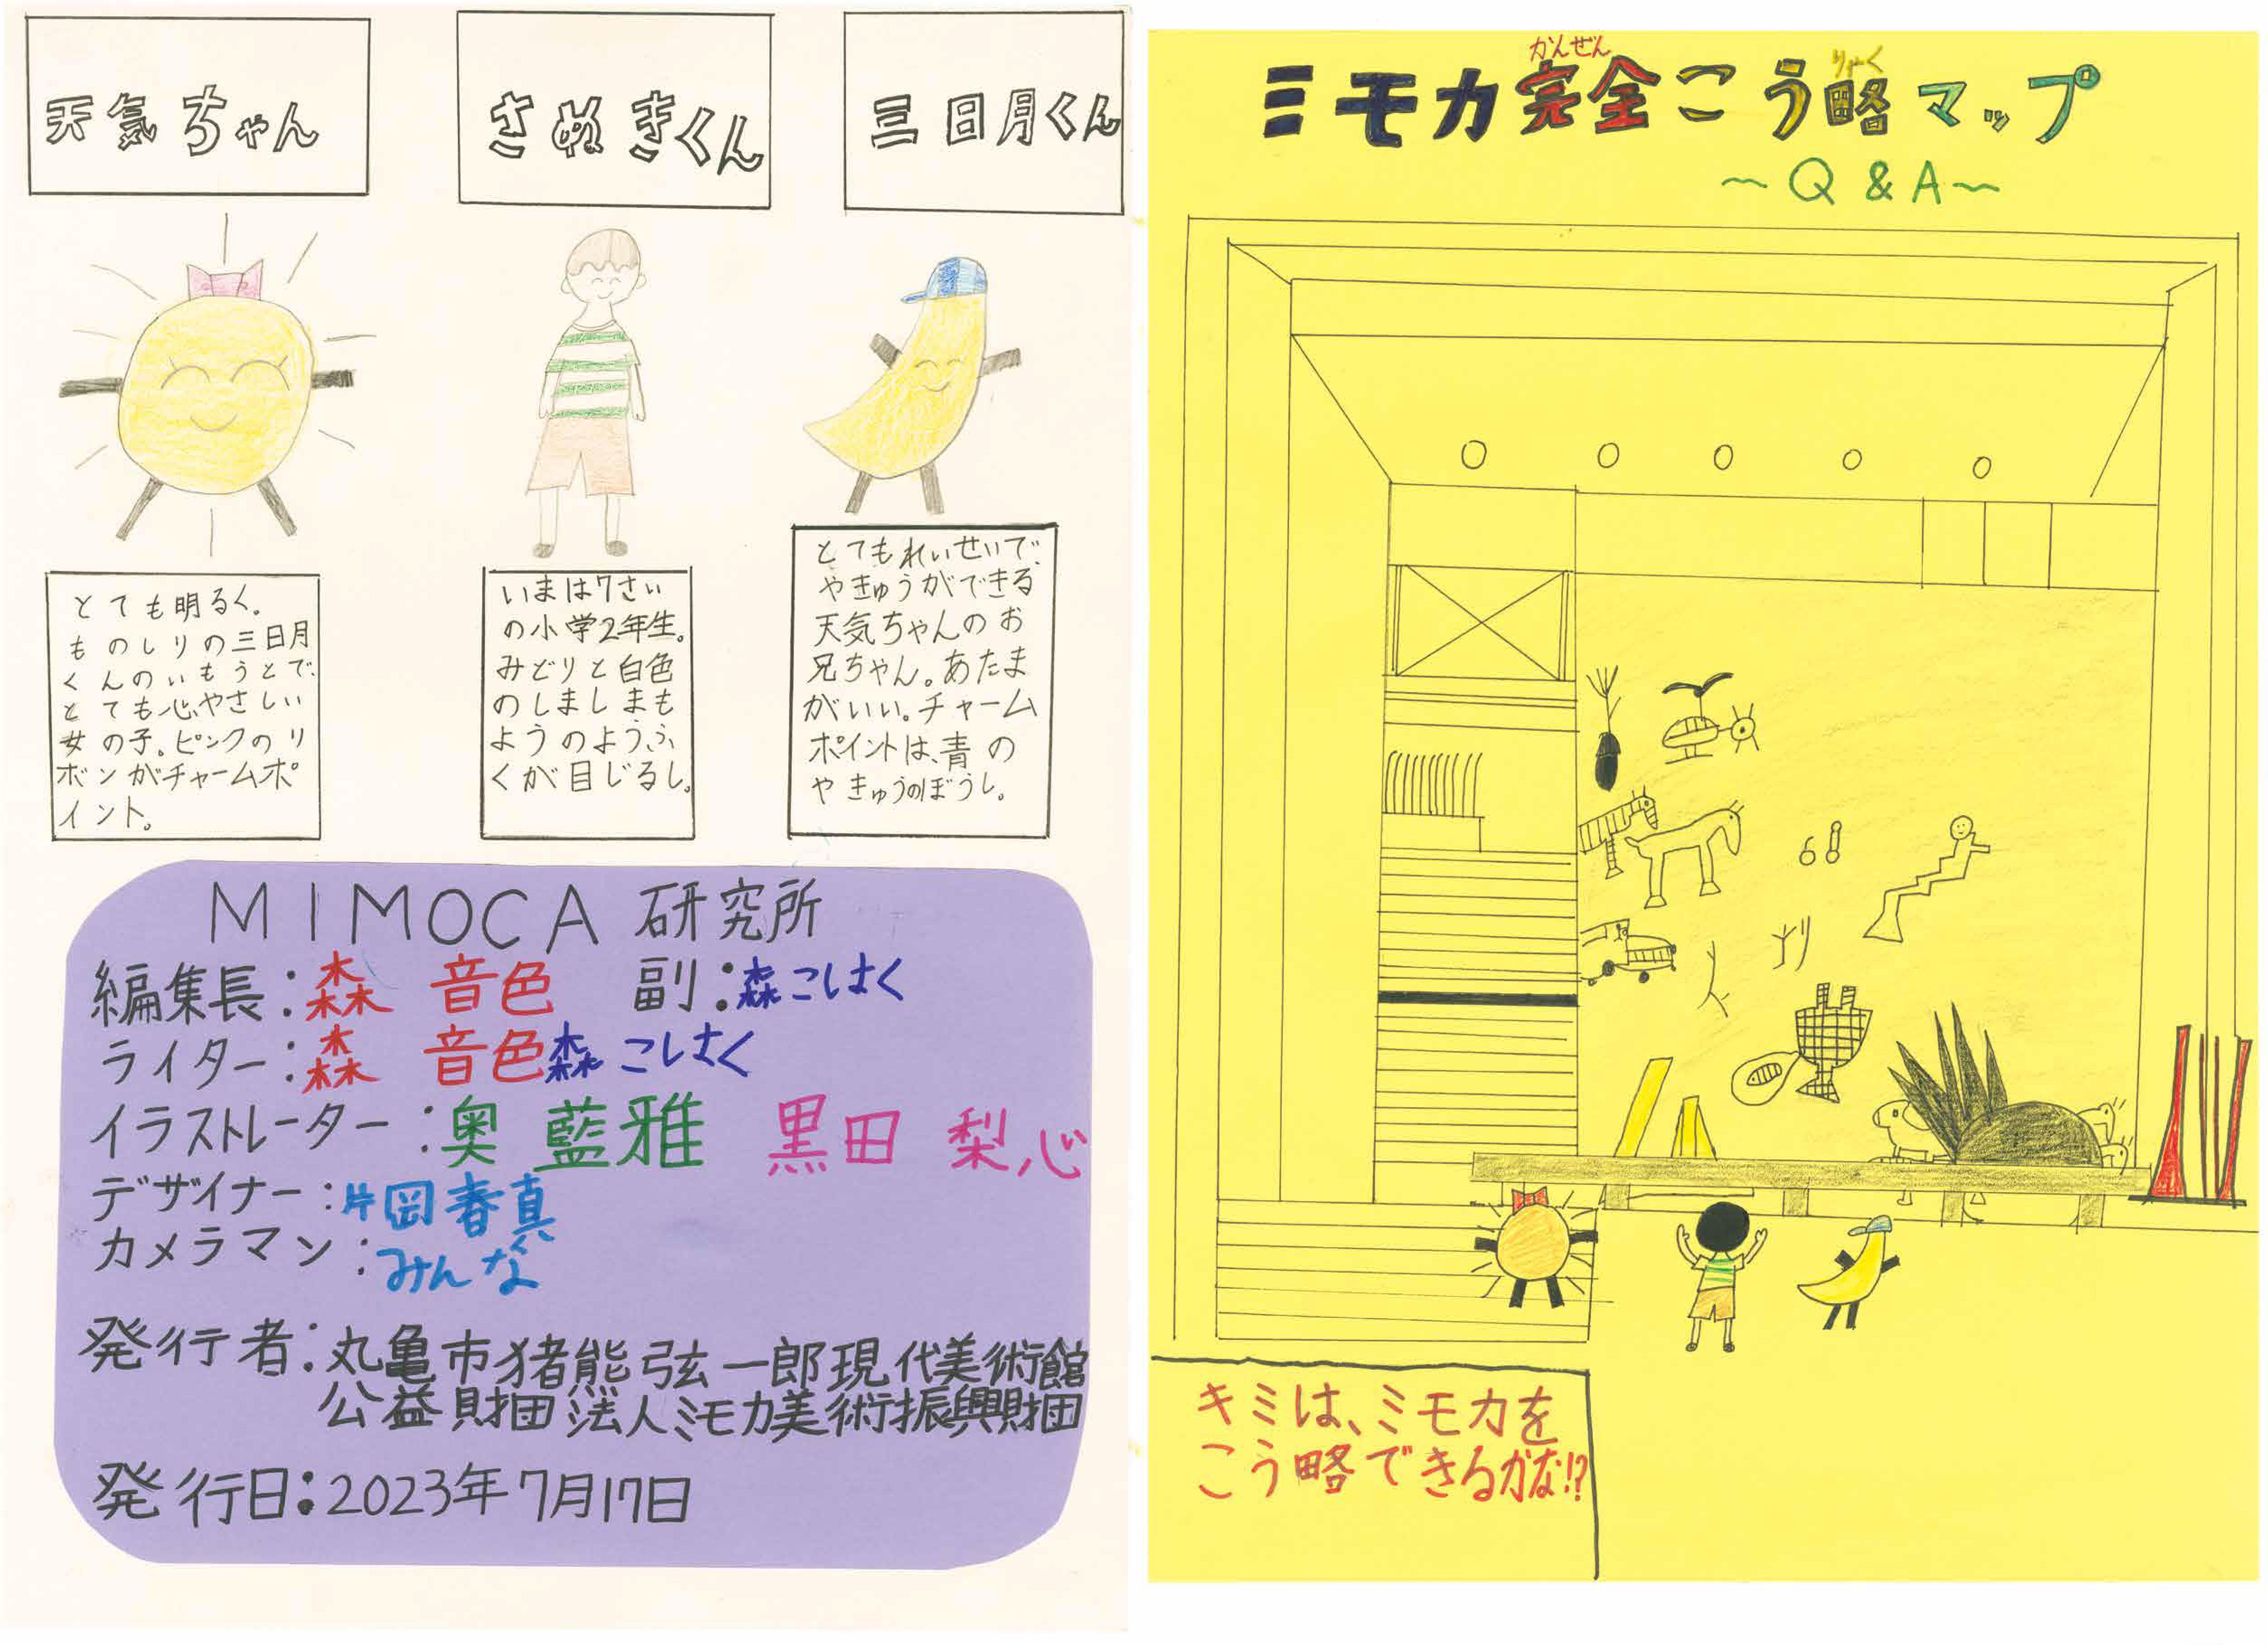 天気ちゃん
さぬきくん
三日月くん
とても明るく。
ものしりの三日月
くんのいもうとで、
とても心やさしい
女の子。ピンクのリ
ボンがチャームポ
イント。
いまは7さい
の小学2年生。
みどりと白色
のしましまも
ようのようふ
くが目じるし。
とてもれいせいで、
やきゅうができる
天気ちゃんのお
兄ちゃん。あたま
がいい。チャーム
ポイントは、青の
やきゅうのぼうし。
MIMOCA 研究所
編集長:森 音色 副:森こはく
ライター:森 音色 森こはく
イラストレーター:奥 藍雅 黒田 梨心
デザイナー:片岡春真
カメラマン:みんな
発行者:丸亀市猪熊弦一郎現代美術館
公益財団法人ミモカ美術振興財団
発行日:2023年7月17日
かんぜん りゃく
ミモカ完全こう略マップ
~Q&A~
キミは、ミモカを
こう略できるかな!?